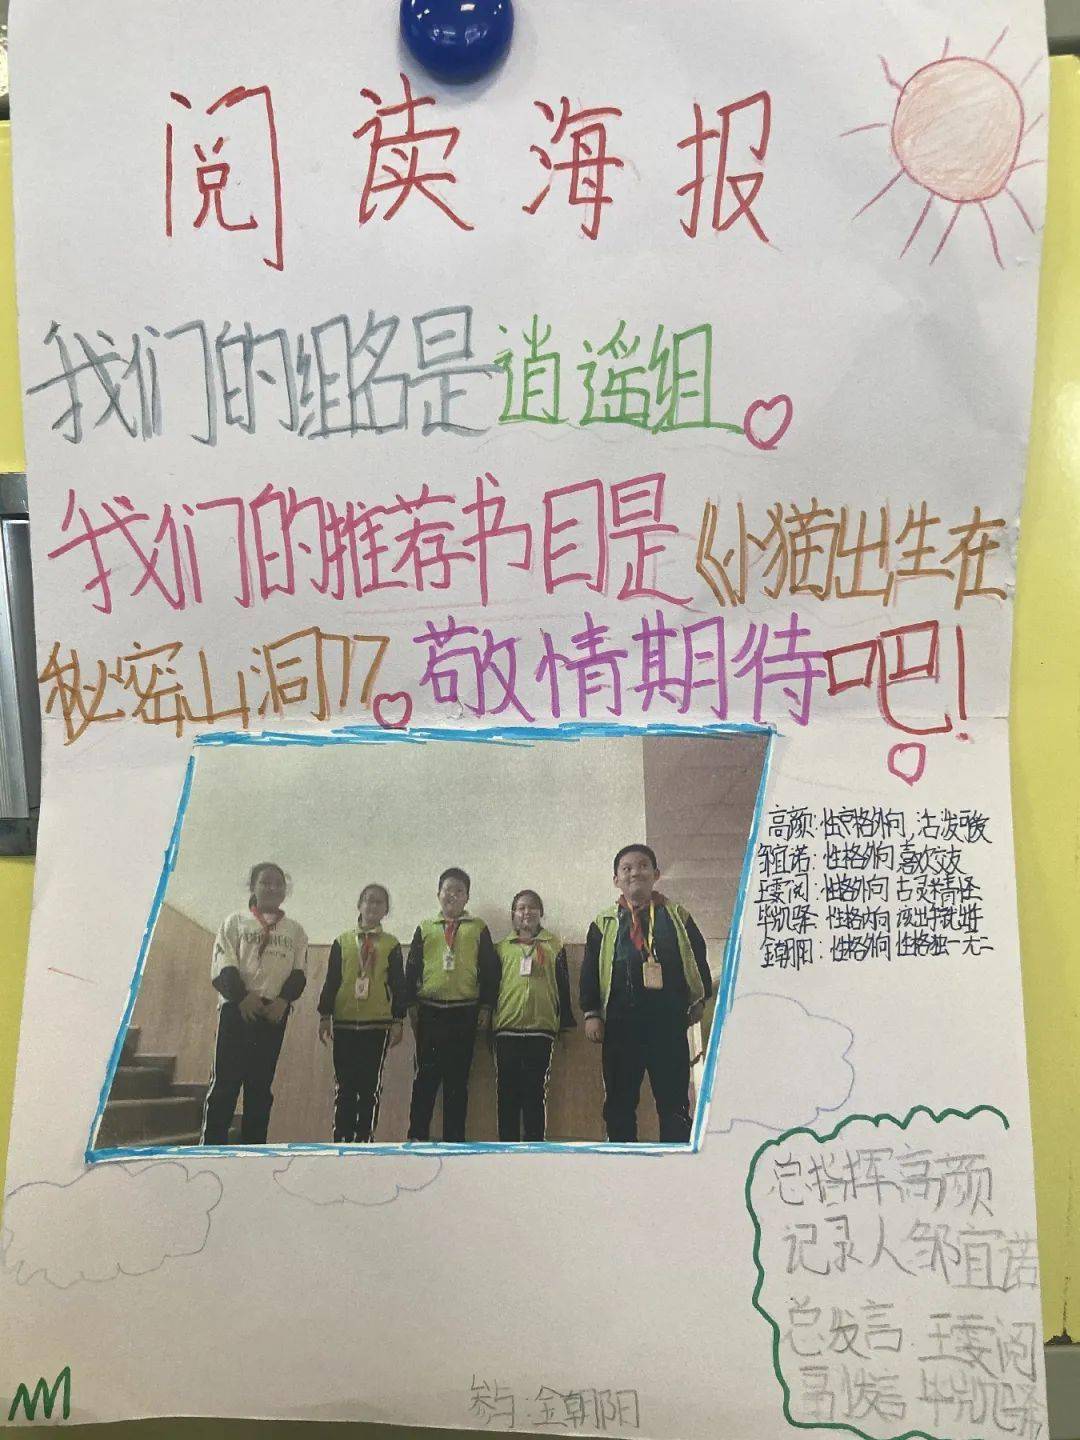 阅读海报
我们的组名是逍遥组
我们的推荐书目是《小猫出生在
秘密山洞》敬情期待吧!
高颜:性格外向,活发可爱
邹宜诺:性格外向 喜欢交友
王雯阅:性格外向 古灵精怪
毕凯骎:性格内向 该出手就出手
金朝阳:性格外向 性格独一无二
总指挥高颜
记录人邹宜诺
总发言:王雯阅
副发言 毕凯骎
参与:金朝阳